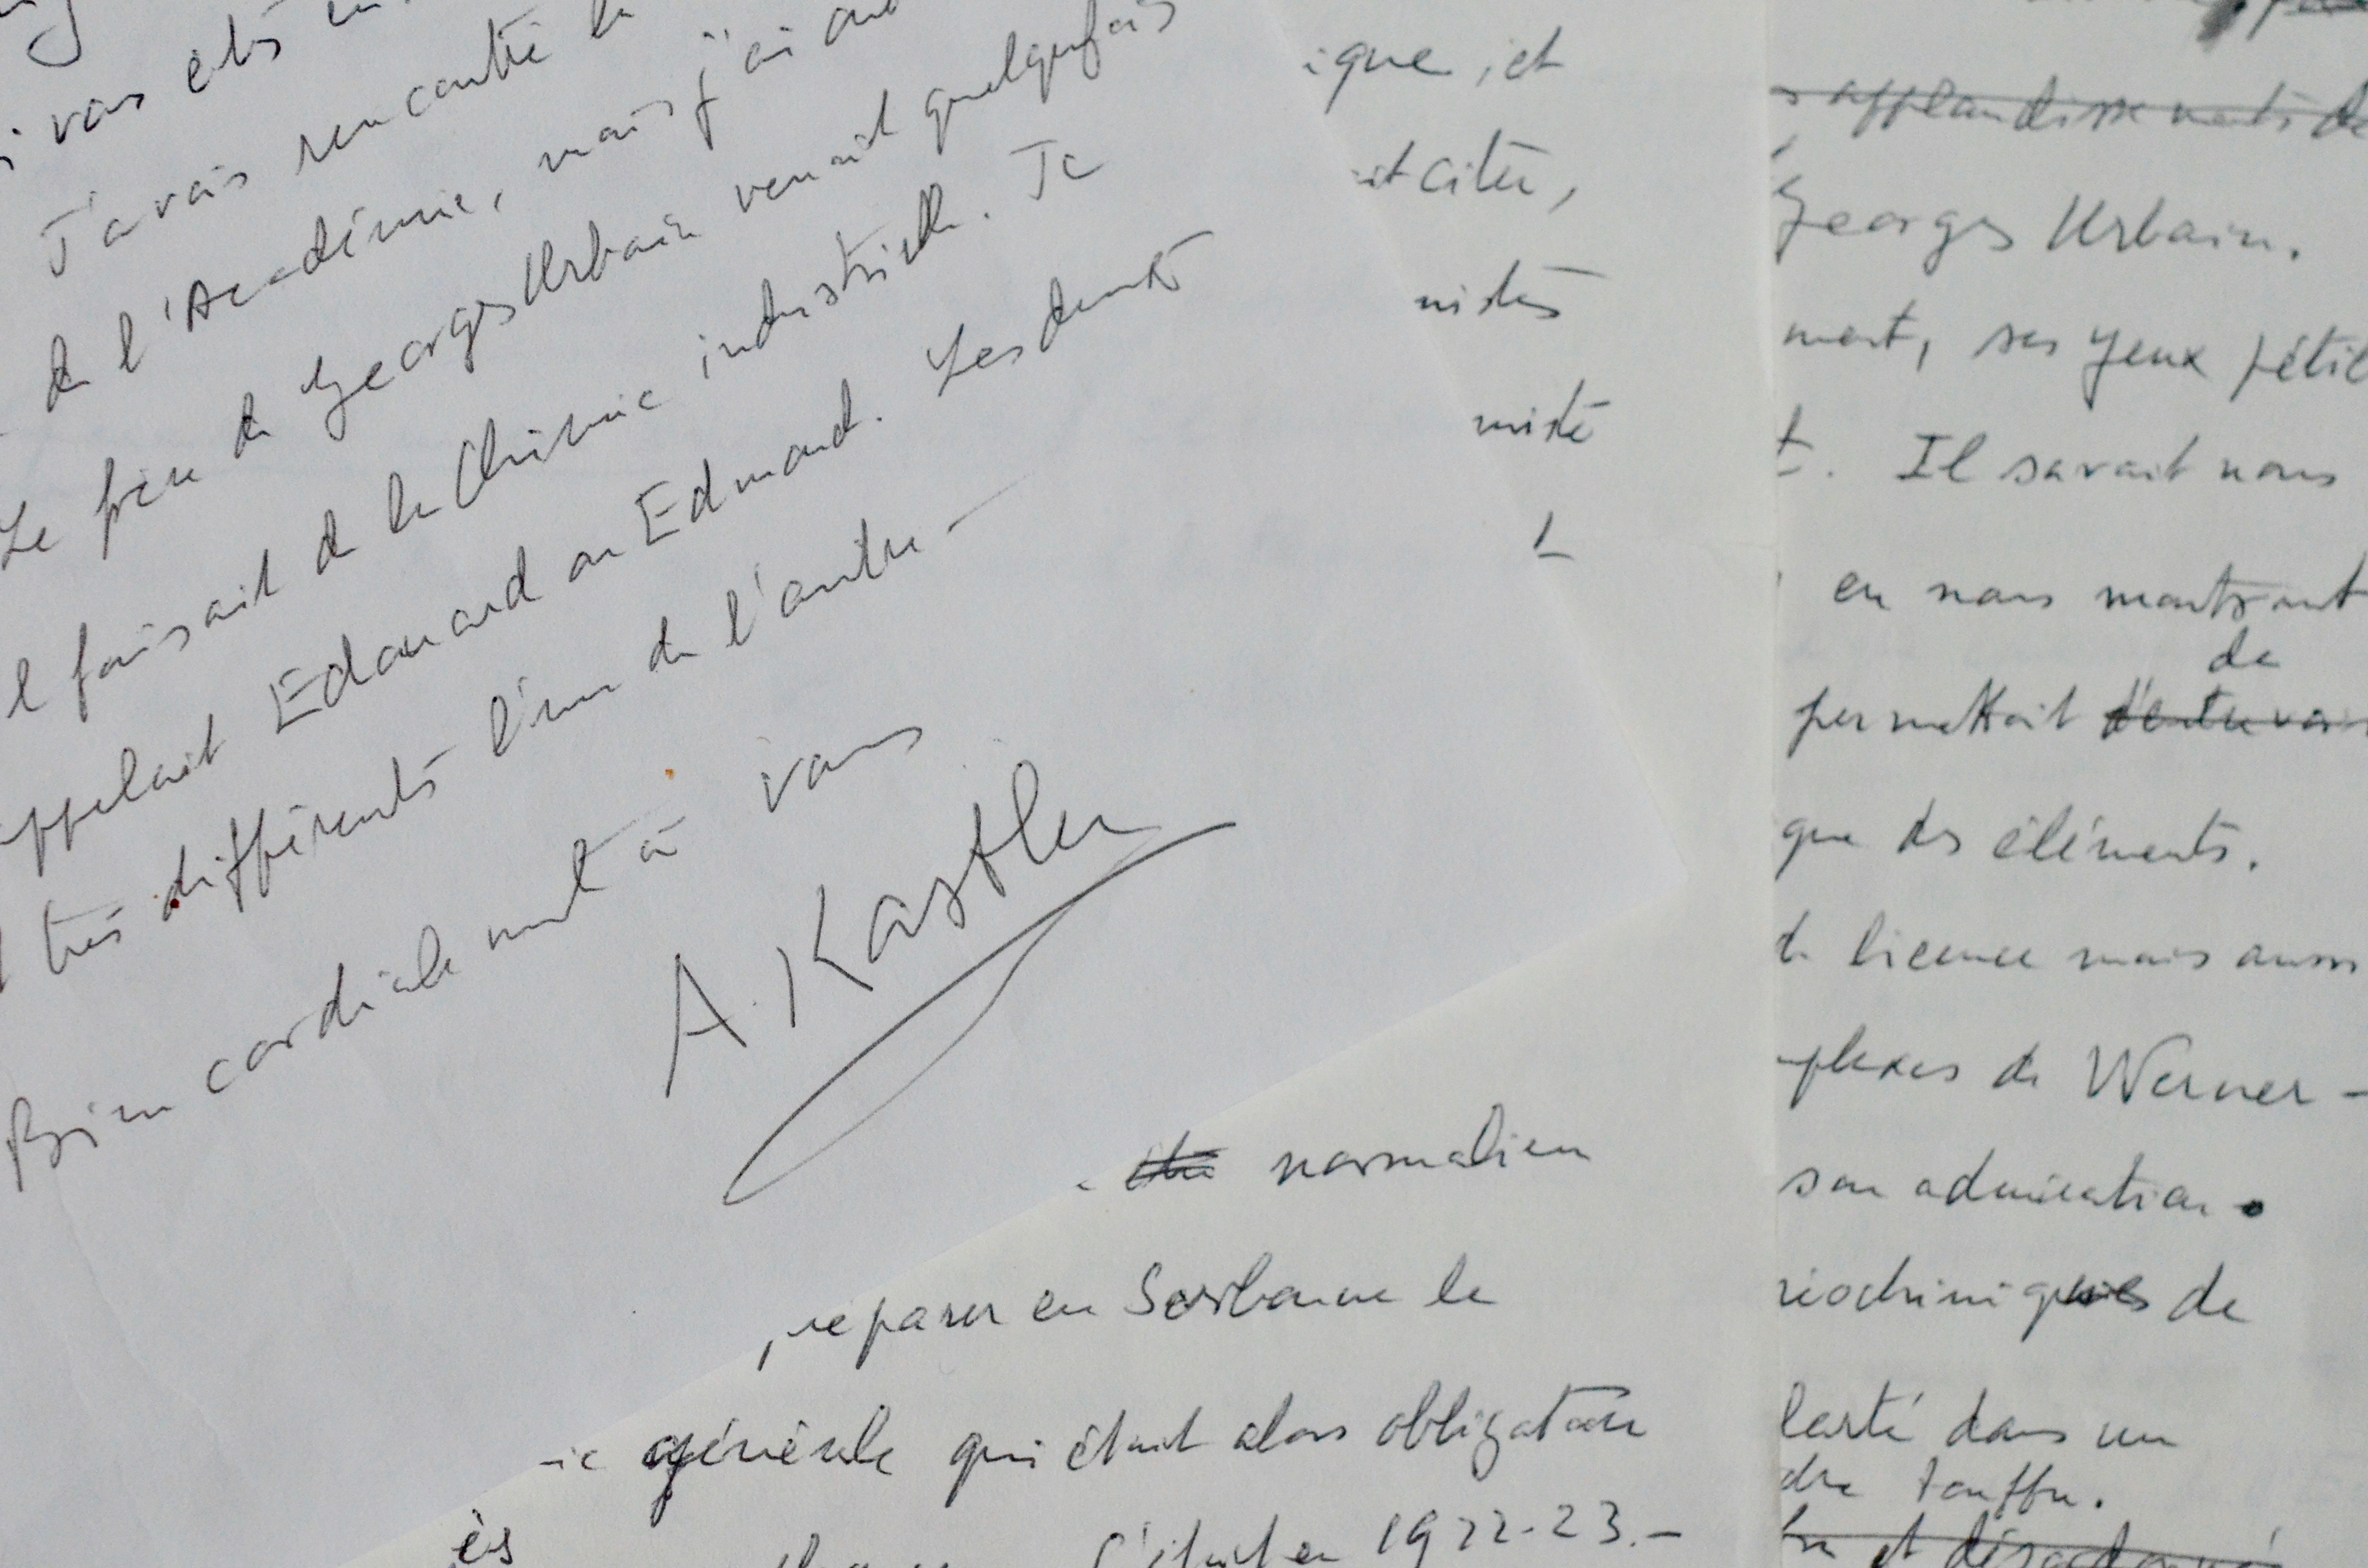 vous êtes
J'avais rencontré le
de l'Académie, mais j'ai
Le frère de Georges Urbain venait quelquefois
l faisait de la Chimie industrielle. Je
appelait Edouard ou Edmond. Les deux
très différents l'un de l'autre —
Bien cordialement à vous
A. Kastler
ique, et
it citer,
nistes
misté
été normalien
réparer en Sorbonne le
ie générale qui était alors obligatoire
ès
C'était en 1922-23. —
s applaudissements de
Georges Urbain.
ment, ses yeux pétil
t. Il savait nous
en nous montrant
de
permettait d'entrevoir
que des éléments.
de licence mais aussi
plexes de Werner —
son admiration.
riochimiques de
larté dans un
dre touffu.
et désordonné